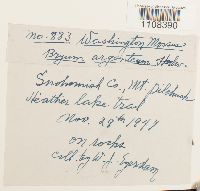 1108390
no. 883 Washington Mosses
Bryum argenteum, Hedw.
Snohomish Co., Mt. Pilchuck
Heather lake trail
Nov. 29th 1947
on rocks
coll. by W. J. Eyerdam